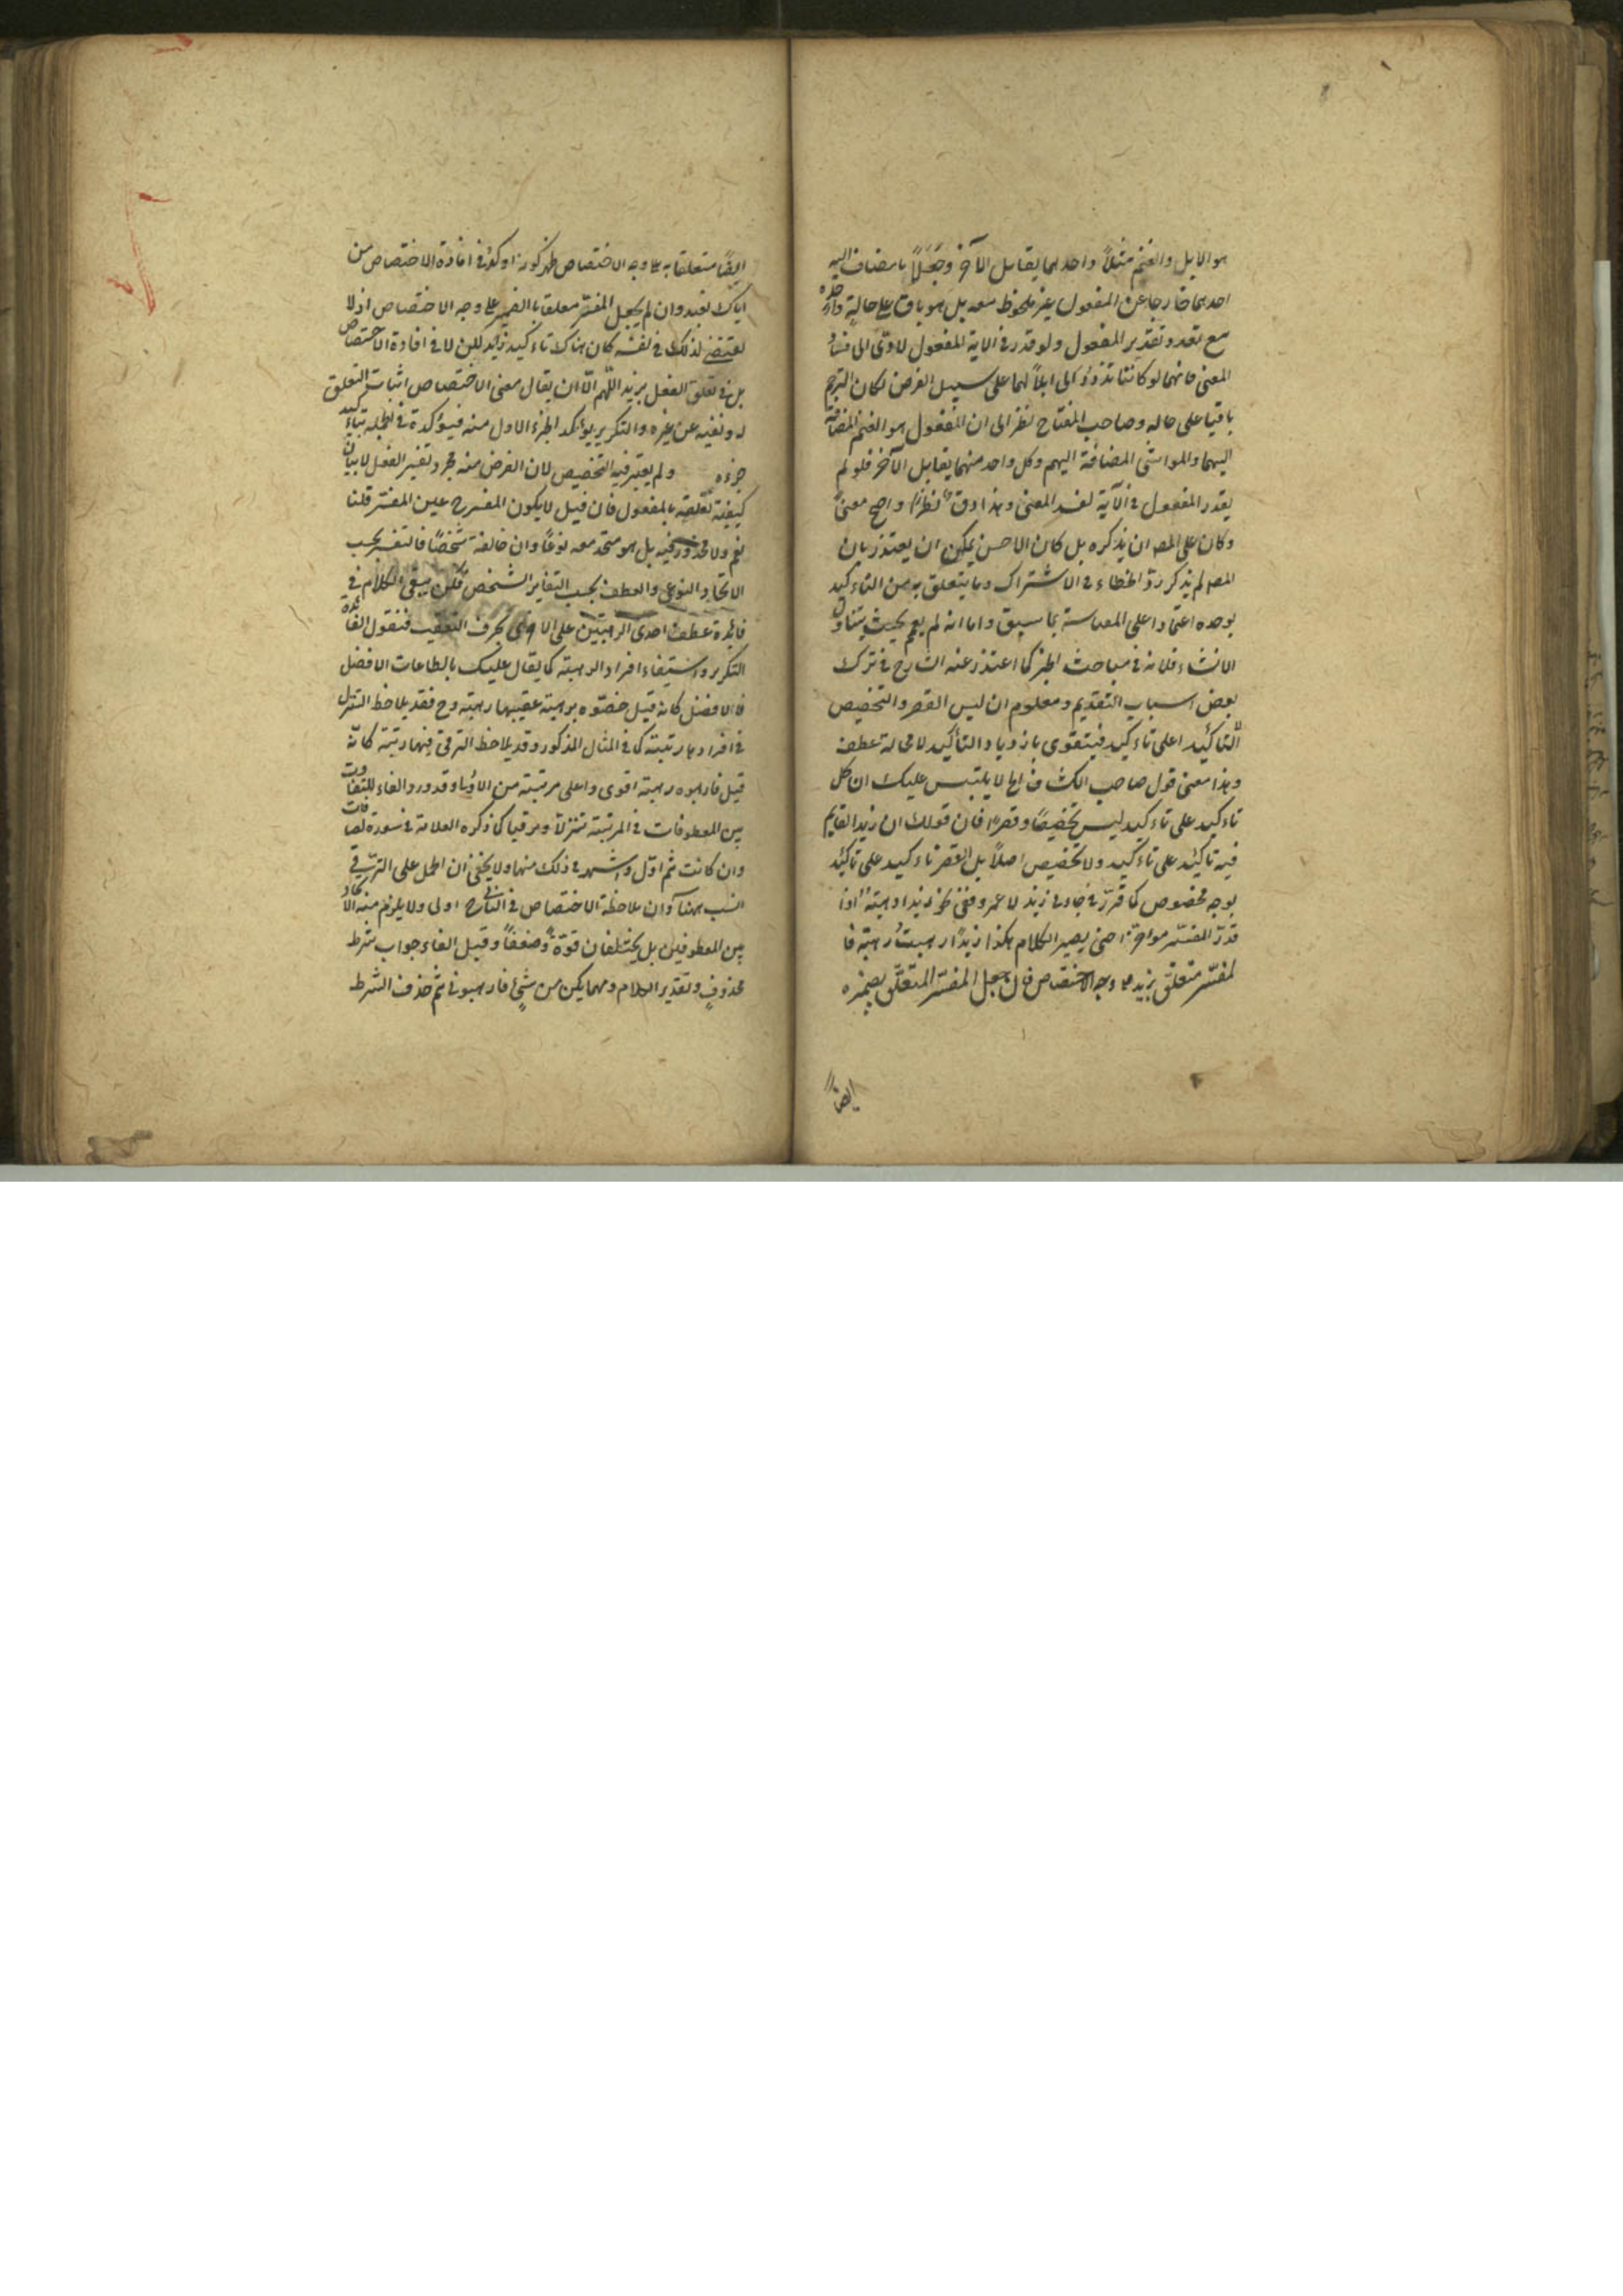 هو الابل والغنم مثلاً واحدهما يقابل الآخر وجعلاً بامضاف اليه
احدهما خارجا عن المفعول غير ملحوظ معه بل هو باق على حاله
مع تعدد تقدير المفعول ولو قدر في الاية المفعول لادى الى فساد
المعنى فانهما لو كانتا تذودان ابلاً لهما على سبيل الفرض لكان الترحم
باقيا على حاله وصاحب المفتاح نظر الى ان المفعول هو الغنم المضافة
اليهما والمواشى المضافة اليهم وكل واحد منهما يقابل الآخر فلو لم
يقدر المفعول في الآية لفسد المعنى وهذا ادق نظراً واصح معنىً
وكان على المص ان يذكره بل كان الاحسن يمكن ان يعتذر بان
المص لم يذكر رد الخطاء في الاشتراك وما يتعلق به من التاءكيد
بوحده اعتمادا على المقايسة بما سبق واما انه لم يعمم بحيث يتناول
الانشاء فلانه في مباحث الخبر كما اعتذر عنه الشارح في ترك
بعض اسباب التقديم ومعلوم ان ليس القصر والتخصيص
الّا تاكيدا على تاءكيد فيتقوى بازدياد التأكيد لا محالة عطف
وهذا معنى قول صاحب الكشاف لا يلتبس عليك ان كل
تاءكيد على تاءكيد ليس تخصيصًا وقصراً فان قولك ان زيدا لقايم
فيه تاكيد على تاءكيد ولا تخصيص اصلاً بل القصر تاءكيد على تاكيد
بوجه مخصوص كما قرر في جاءنى زيد لا عمرو ففى نحو زيدا رهبته اذا
قدر المفسّر مؤخرا حتى يصير الكلام هكذا زيدًا رهبت رهبته فا
لمفسّر متعلق بزيد على وجه الاختصاص فان جعل المفسّر المتعلق بضميره
ايضاً
ايضًا متعلقا به على وجه الاختصاص في افادة الاختصاص من
اياك نعبد وان لم يجعل المفسّر متعلقا بالضمير على وجه الاختصاص اذ لا
يقتضى لذلك في نفسه كان هناك تاءكيد زايد لكن لا في افادة الاختصاص
بل في تعلق الفعل بزيد اللهم الّا ان يقال معنى الاختصاص اثبات التعلق
له ونفيه عن غيره والتكرير يؤكد الجزء الاول منه فيؤكده في الجملة بتاءكيد
جزءه ولم يعتبر فيه التخصيص لان الغرض منه مجرد تفسير الفعل لا بيان
كيفية تعلقه بالمفعول فان قيل لا يكون المفسرح عين المفسّر قلنا
نعم ولا محذور فيه بل هو متحد معه نوعًا وان خالفه شخصًا فالتفسير بحسب
الاتحاد النوعى والعطف بحسب التغاير الشخصى لكن يبقى الكلام في
فايدة عطف احدى الرهبتين على الاخرى بحرف التعقيب فنقول الفائدة
التكرير واستيفاء افراد الرهبة كما يقال عليك بالطاعات الافضل
فالافضل كانه قيل خصّوه برهبة عقيبها رهبة وح فقد يلاحظ التنزل
في افرادها رتبته كما في المثال المذكور وقد يلاحظ الترقى فيها رتبة كانّه
قيل فارهبوه رهبة اقوى واعلى مرتبة من الاولى وقد ورد الفاء للتفاوت
بين المعطوفات في المرتبة تنزلاً وترقيا كما ذكره العلامة في سورة الصافات
وان كانت ثم اول واشهر في ذلك منها ولا يخفى ان الحمل على الترقى
انسب ههنا وان ملاحظة الاختصاص في الثانى ح اولى ولا يلزم منه الاتحاد
بين المعطوفين بل يختلفان قوّةً وضعفًا وقيل الفاء جواب شرط
محذوفٍ وتقدير الكلام ومهما يكن من شىءٍ فارهبونى ثم حذف الشرط